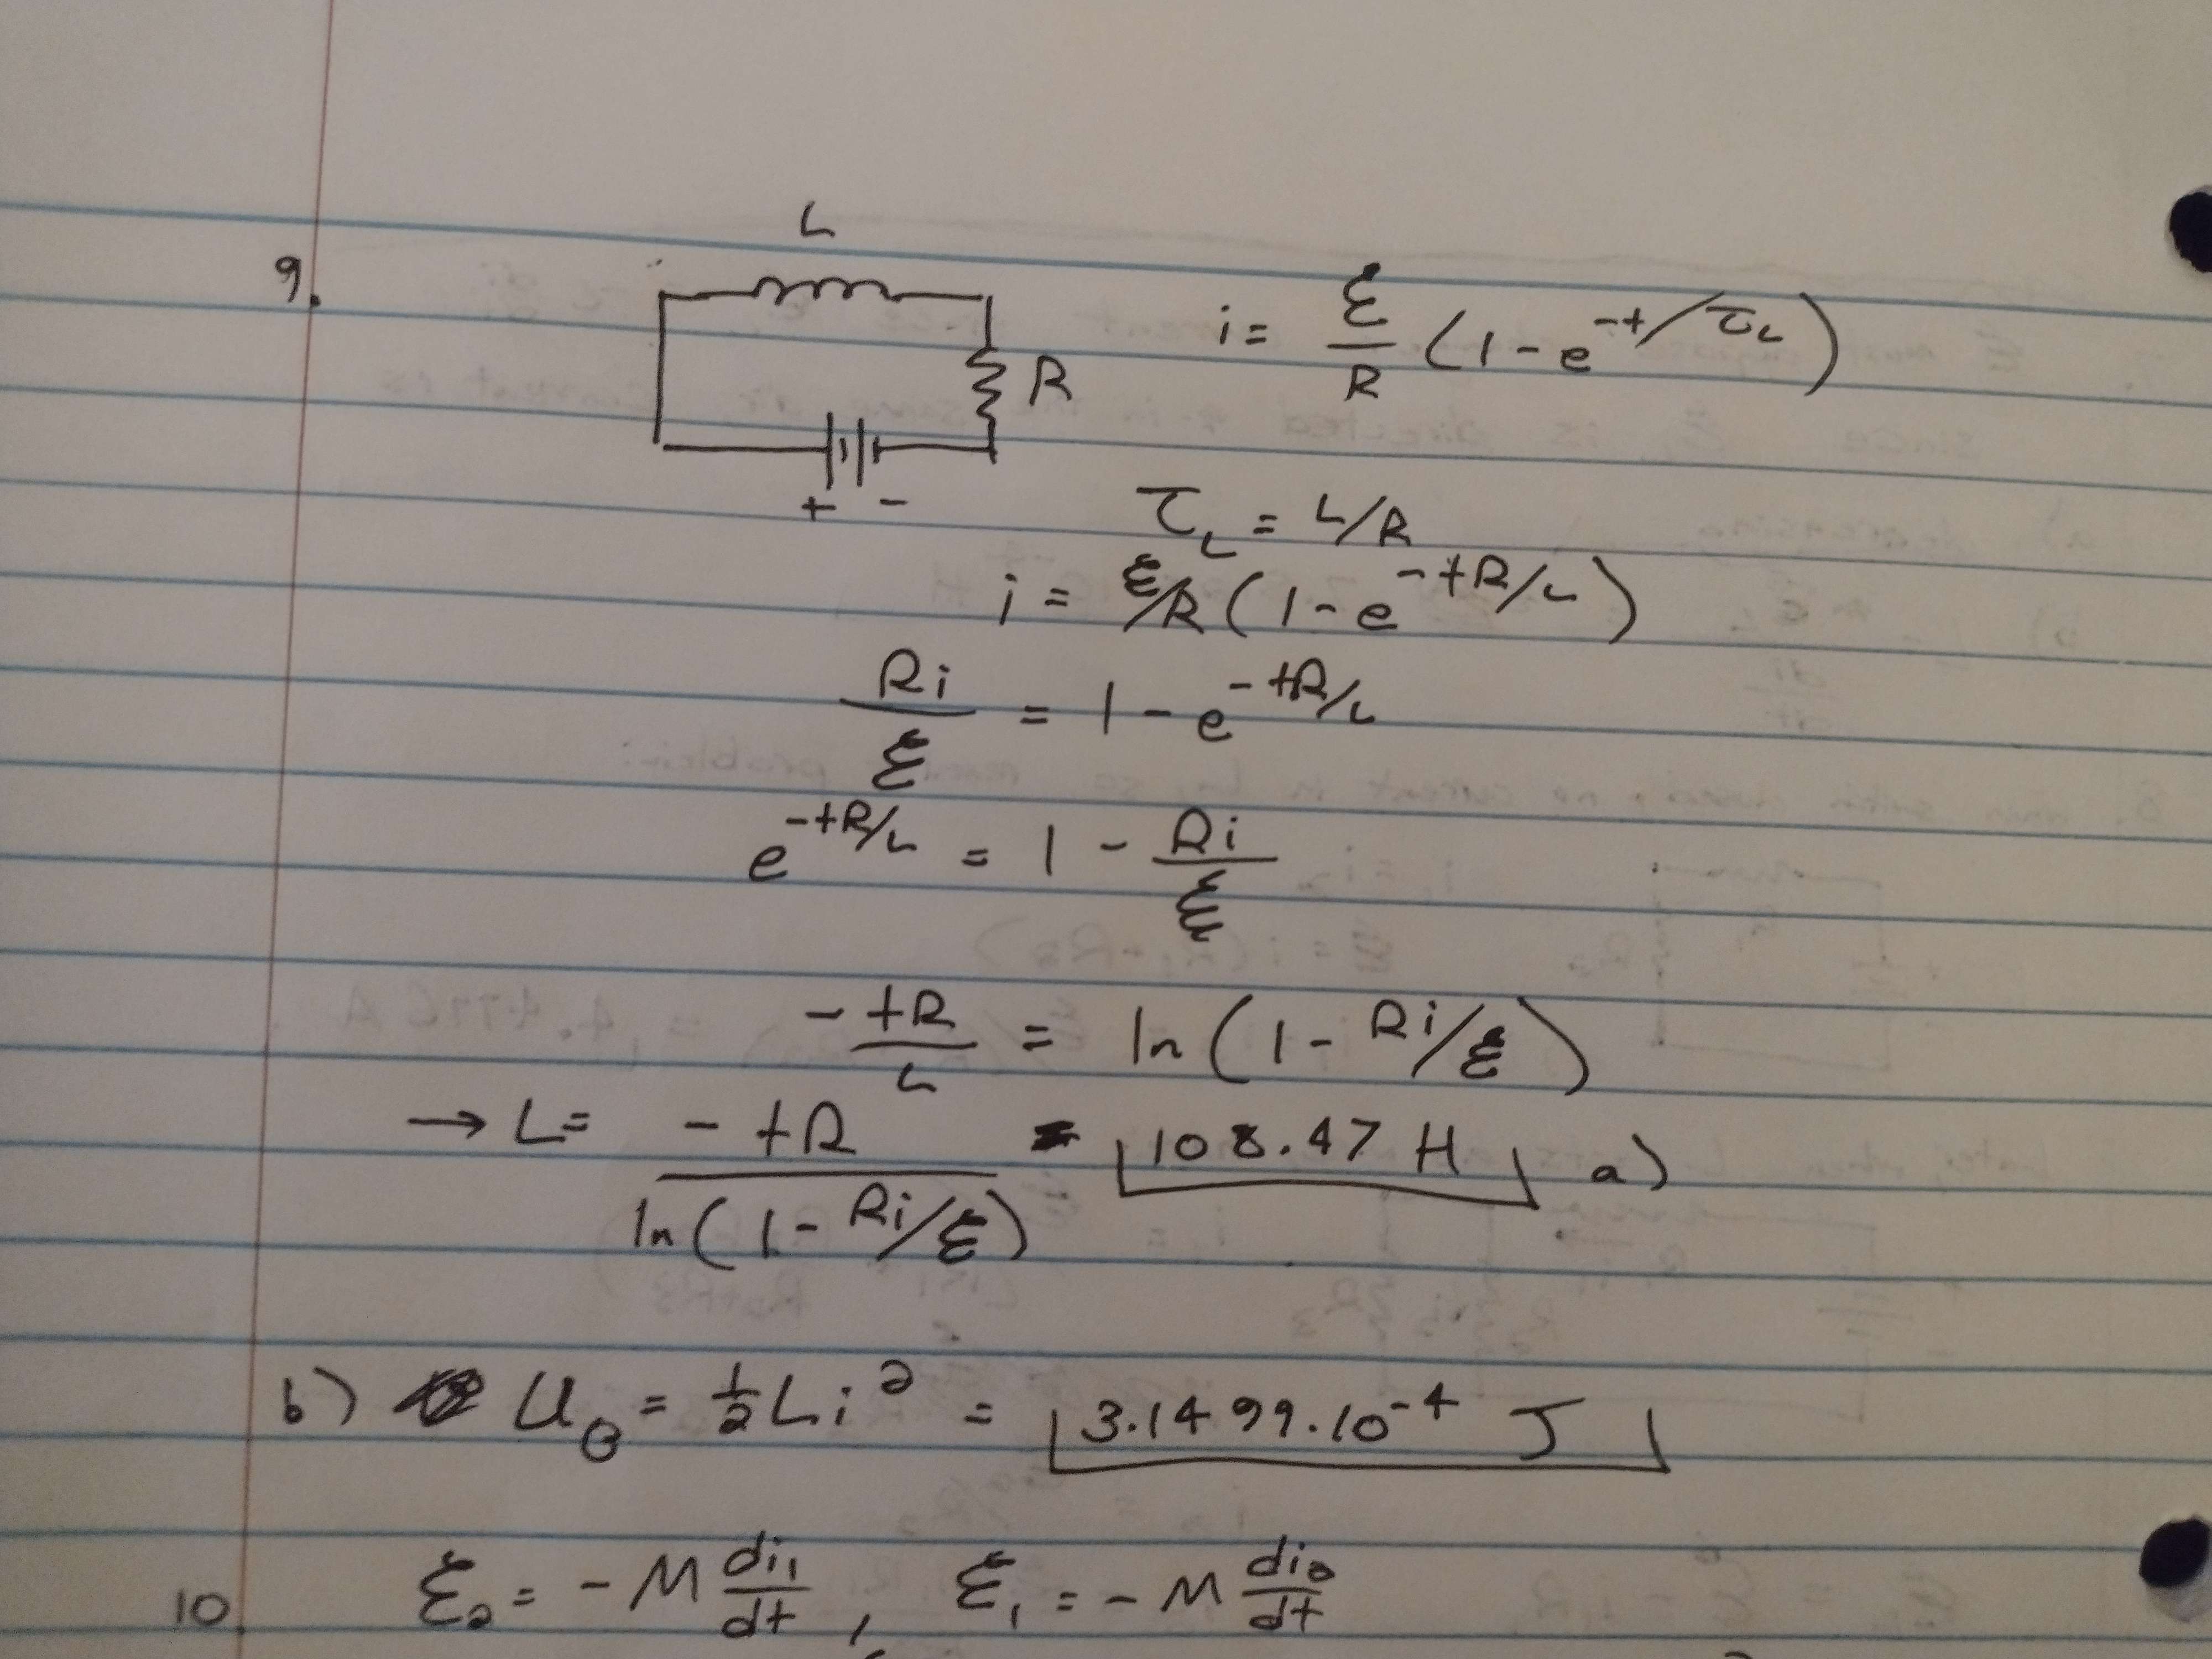 L
9.
i = ℰ/R (1 - e^(-t/τ_L))
R
+ -
τ_L = L/R
i = ℰ/R (1 - e^(-tR/L))
Ri/ℰ = 1 - e^(-tR/L)
e^(-tR/L) = 1 - Ri/ℰ
-tR/L = ln(1 - Ri/ℰ)
→ L = -tR/ln(1 - Ri/ℰ) = 108.47 H a)
b) U_B = ½Li² = 3.1499·10⁻⁴ J
10. ℰ₂ = -M di₁/dt, ℰ₁ = -M di₂/dt